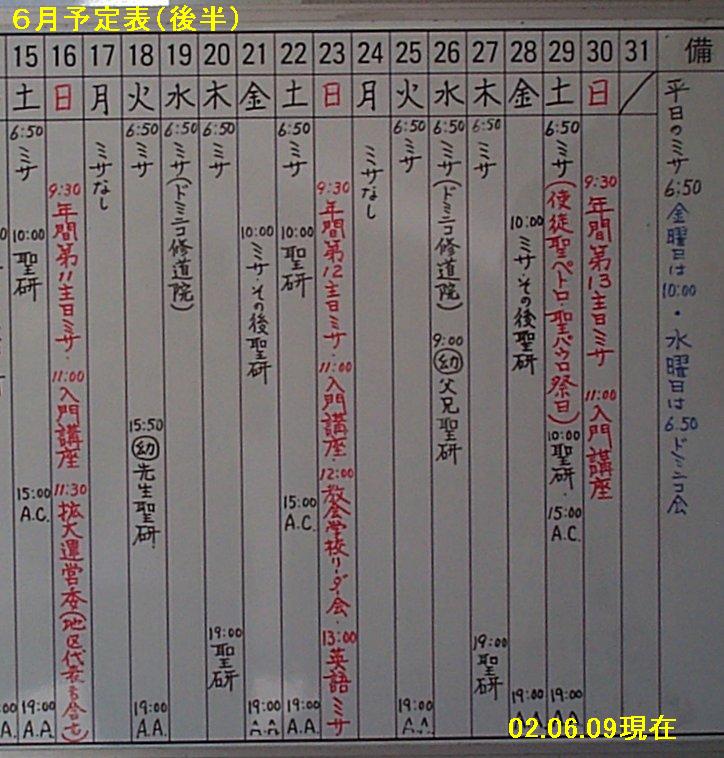 ６月予定表(後半)
15 16 17 18 19 20 21 22 23 24 25 26 27 28 29 30 31 備
土 日 月 火 水 木 金 土 日 月 火 水 木 金 土 日
6:50 ミサ
10:00 聖研
15:00 A.C.
19:00 A.A.
9:30 年間第11主日ミサ・
11:00 入門講座
11:30 拡大運営委(地区代表も含む)
ミサなし
6:50 ミサ
15:50 幼 先生聖研
19:00 A.A.
6:50 ミサ(ドミニコ修道院)
6:50 ミサ
19:00 聖研
10:00 ミサ・その後聖研
19:00 A.A
6:50 ミサ
10:00 聖研
15:00 A.C.
19:00 A.A.
9:30 年間第12主日ミサ・
11:00 入門講座・
12:00 教会学校リーダー会・
13:00 英語ミサ
ミサなし
6:50 ミサ
19:00 A.A.
6:50 ミサ(ドミニコ修道院)
9:00 幼 父兄聖研
6:50 ミサ
19:00 聖研
10:00 ミサ・その後聖研
19:00 A.A.
6:50 ミサ(使徒聖ペトロ・聖パウロ祭日)
10:00 聖研・
15:00 A.C.
19:00 A.A.
9:30 年間第13主日ミサ
11:00 入門講座
平日のミサ 6:50 金曜日は 10:00・水曜日は 6.50 ドミニコ会
02.06.09現在